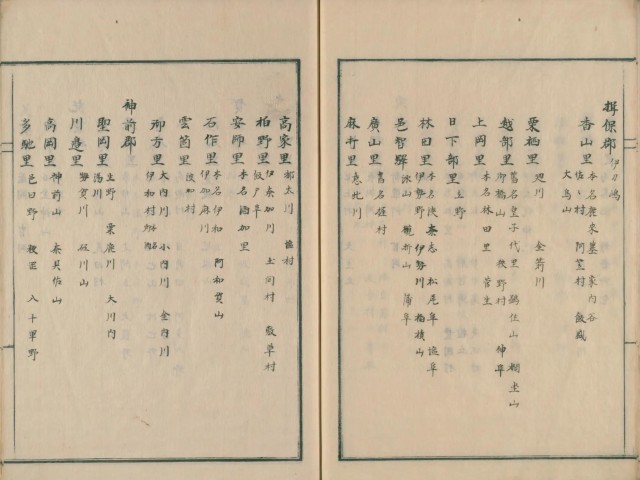 揖保郡 伊刀嶋
香山里 本名鹿来墓 家内谷
佐々村 阿笠村 飯盛
大鳥山
栗栖里 廻川 金箭川
越部里 舊名皇子代里 鷁住山 棚坐山
御橋山 狭野村 神阜
上岡里 本名林田里 菅生
日下部里 立野
林田里 本名淡奈志 松尾阜 塩阜
伊勢野 伊勢川 稲積山
邑智驛 冰山 槻折山 蒲阜
廣山里 舊名握村
麻打里 意此川
高家里 都太川 塩村
柏野里 伊奈加川 土間村 敷草村
飯戸阜
安師里 本名酒加里
石作里 本名伊和 阿和賀山
伊加麻川
雲箇里 波加村
御方里 大内川 小内川 金内川
伊和村
神前郡
聖岡里 生野 粟鹿川 大川内
湯川
川邊里 勢賀川 砥川山
高岡里 神前山 奈具佐山
多駞里 邑曰野 粳岡 八千軍野